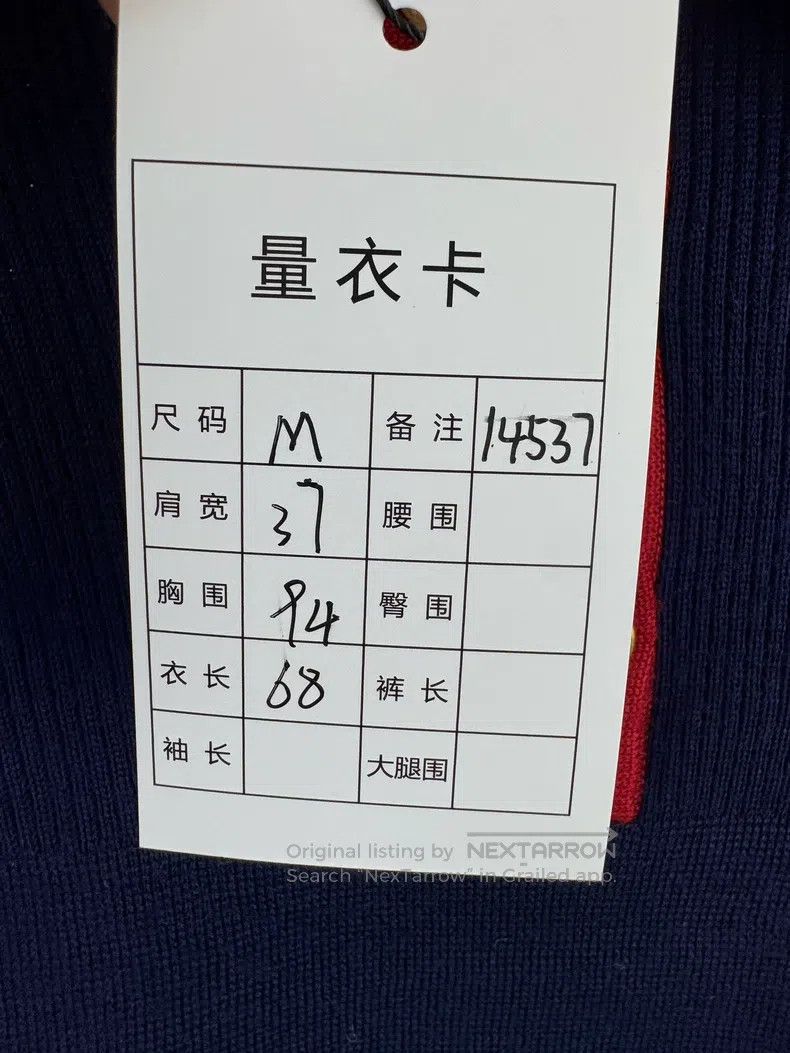 量衣卡
尺码 M 备注 14537
肩宽 37 腰围
胸围 94 臀围
衣长 68 裤长
袖长 大腿围
Original listing by NEXTARROW
Search "NexTarrow" in Grailed app.